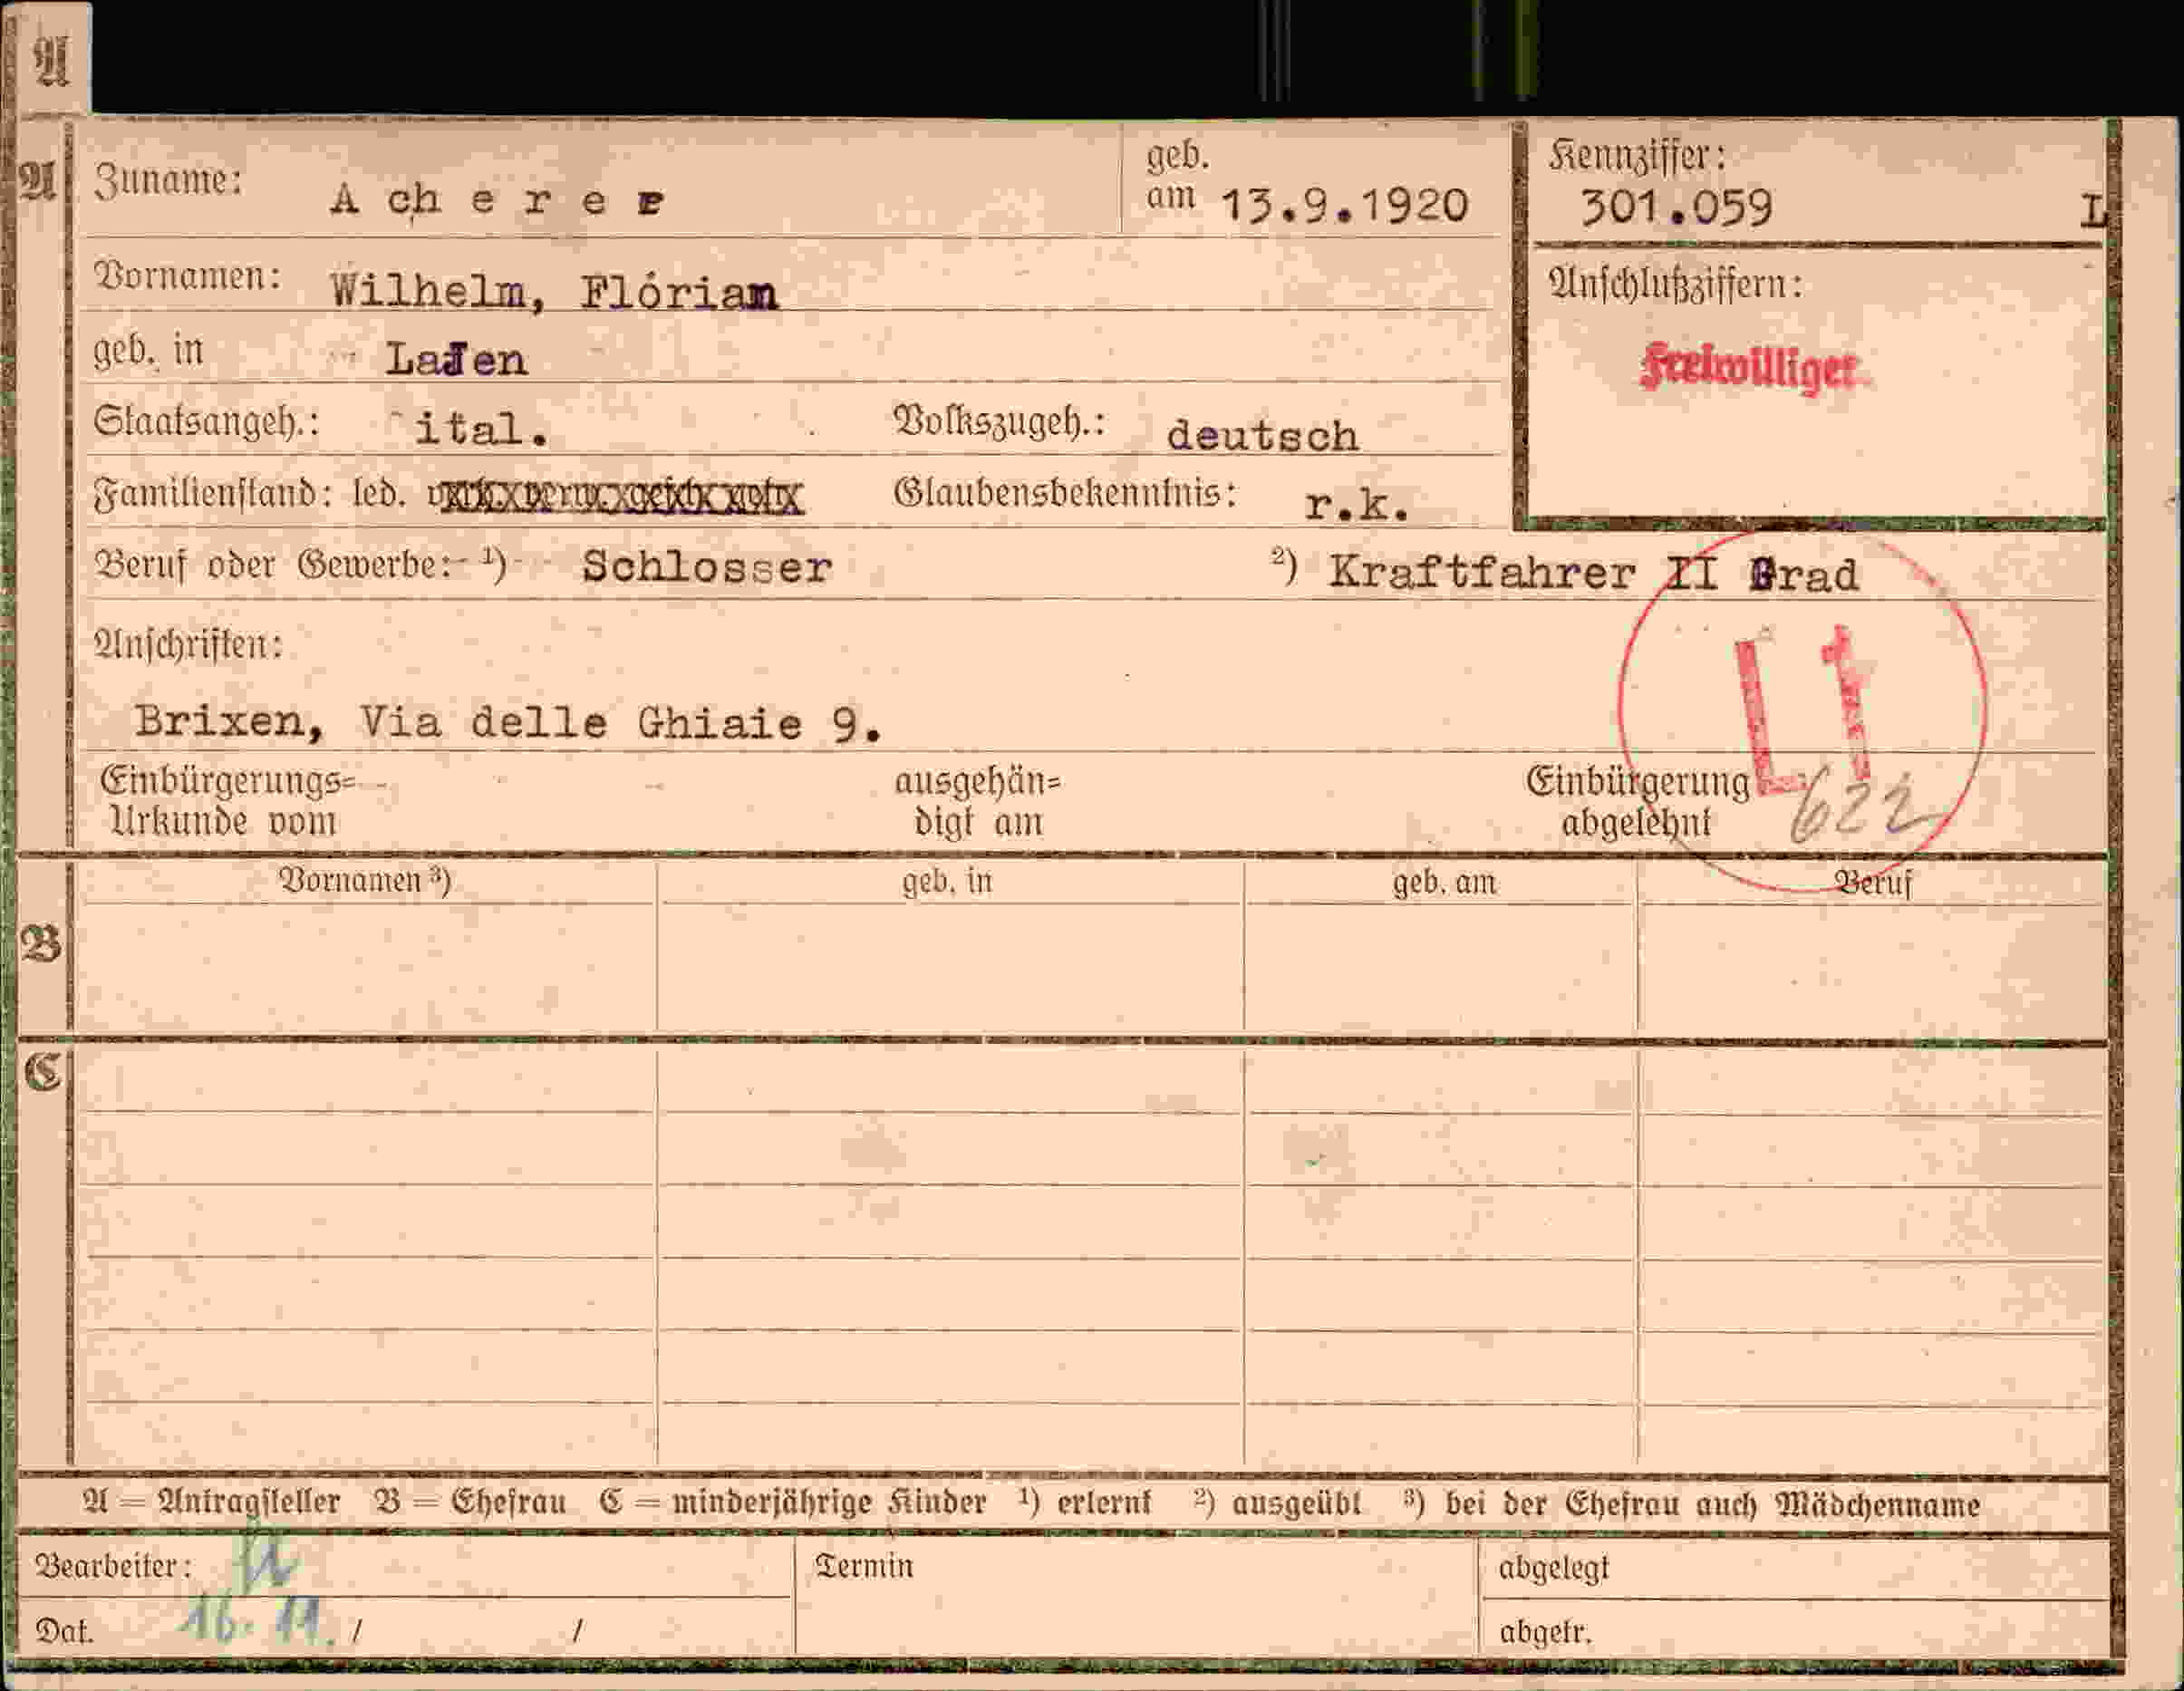 A
A Zuname: Acherer geb. am 13.9.1920 Kennziffer: 301.059 L
Vornamen: Wilhelm, Flórian Anschlußziffern:
geb. in Lajen Freiwilliger
Staatsangeh.: ital. Volkszugeh.: deutsch
Familienstand: led. verh. verw. gesch. Glaubensbekenntnis: r.k.
Beruf oder Gewerbe: ¹) Schlosser ²) Kraftfahrer II Grad
Anschriften:
L1
Brixen, Via delle Ghiaie 9.
Einbürgerungs= ausgehän= Einbürgerung
Urkunde vom digt am abgelehnt 622
Vornamen ³) geb. in geb. am Beruf
B
C
A = Antragsteller B = Ehefrau C = minderjährige Kinder ¹) erlernt ²) ausgeübt ³) bei der Ehefrau auch Mädchenname
Bearbeiter: Termin abgelegt
Dat. 16. 11. / / abgetr.